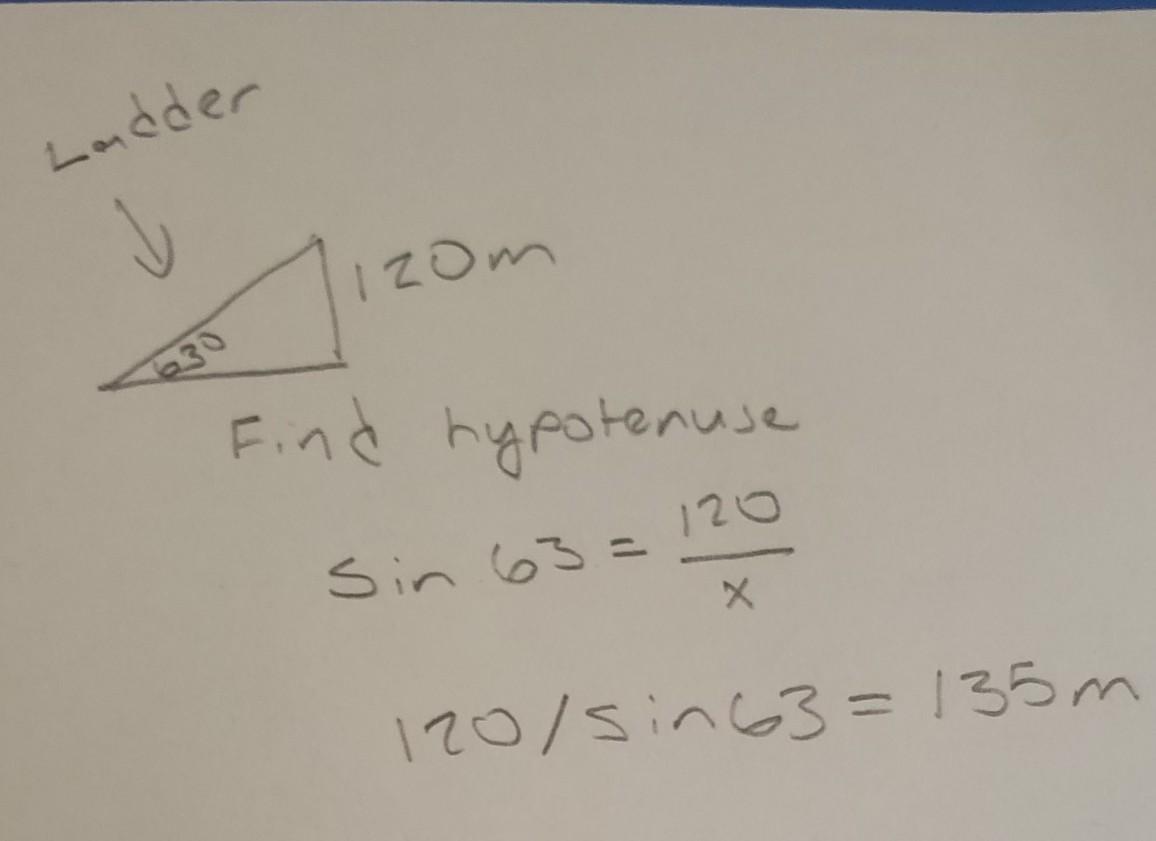 Ladder
120m
63°
Find hypotenuse
Sin 63 = 120/x
120/sin63 = 135m